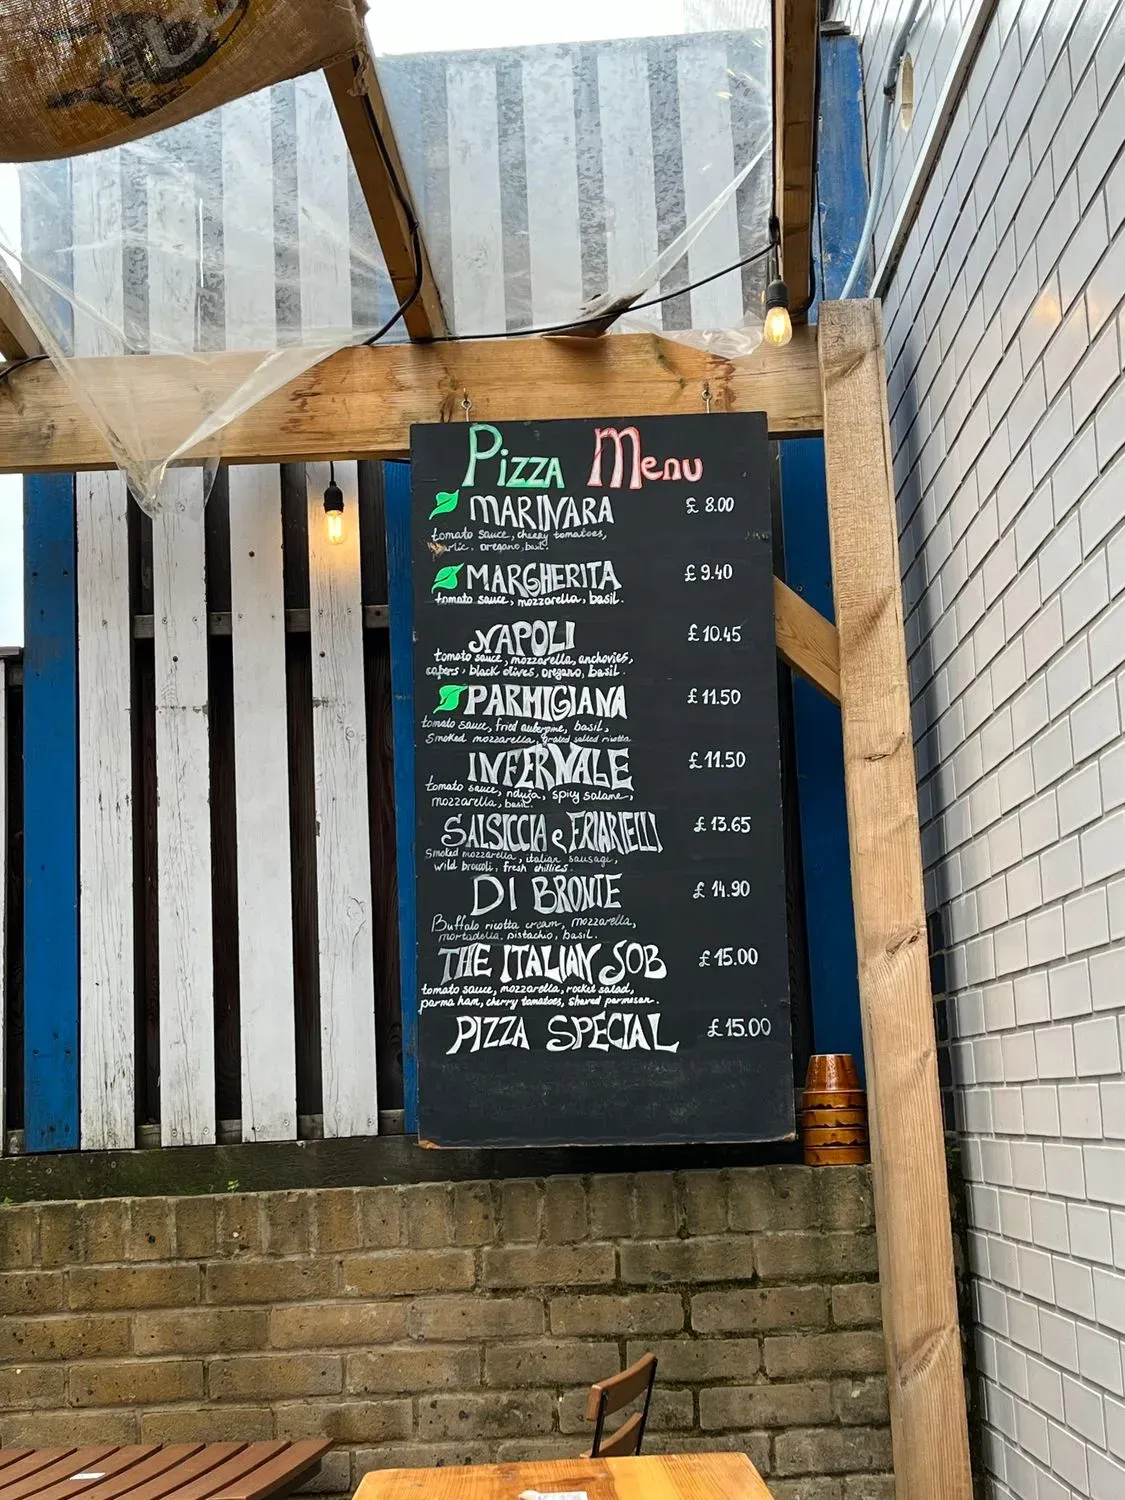 Pizza Menu
MARINARA £ 8.00
tomato sauce, cherry tomatoes,
garlic, oregano, basil.
MARGHERITA £ 9.40
tomato sauce, mozzarella, basil.
NAPOLI £ 10.45
tomato sauce, mozzarella, anchovies,
capers, black olives, oregano, basil.
PARMIGIANA £ 11.50
tomato sauce, fried aubergine, basil,
Smoked mozzarella, grated salted ricotta
INFERNALE £ 11.50
tomato sauce, nduja, spicy salame,
mozzarella, basil.
SALSICCIA e FRIARIELLI £ 13.65
Smoked mozzarella, italian sausage,
wild broccoli, fresh chillies.
DI BRONTE £ 14.90
Buffalo ricotta cream, mozzarella,
mortadella, pistachio, basil.
THE ITALIAN JOB £ 15.00
tomato sauce, mozzarella, rocket salad,
parma ham, cherry tomatoes, shaved parmesan.
PIZZA SPECIAL £ 15.00